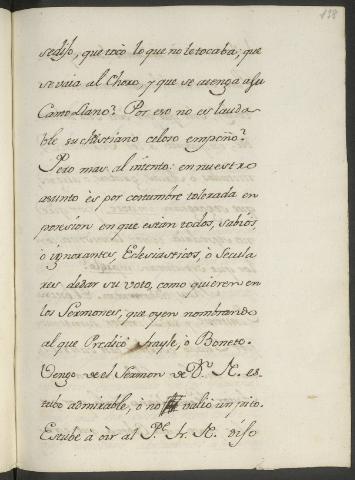 138
se dijo, que tocó lo que no le tocaba; que
se vaia al Choro, y que se atenga a su
Canto Llano? Por eso no es lauda
ble su christiano celoso empeño?
Pero mas al intento: en nuestro
asunto és por costumbre tolerada en
posesion en que estan todos, sabios,
ò ignorantes, Eclesiasticos, ò Secula
res de dar su voto, como quieren en
los Sermones, que oyen nombrando
al que Predicò Frayle, ò Bonete.
Vengo de el Sermon de Dn. N. es-
tubo admirable, ò no valiò un pito.
Estube à oìr al Pe. Fr. N. dijo